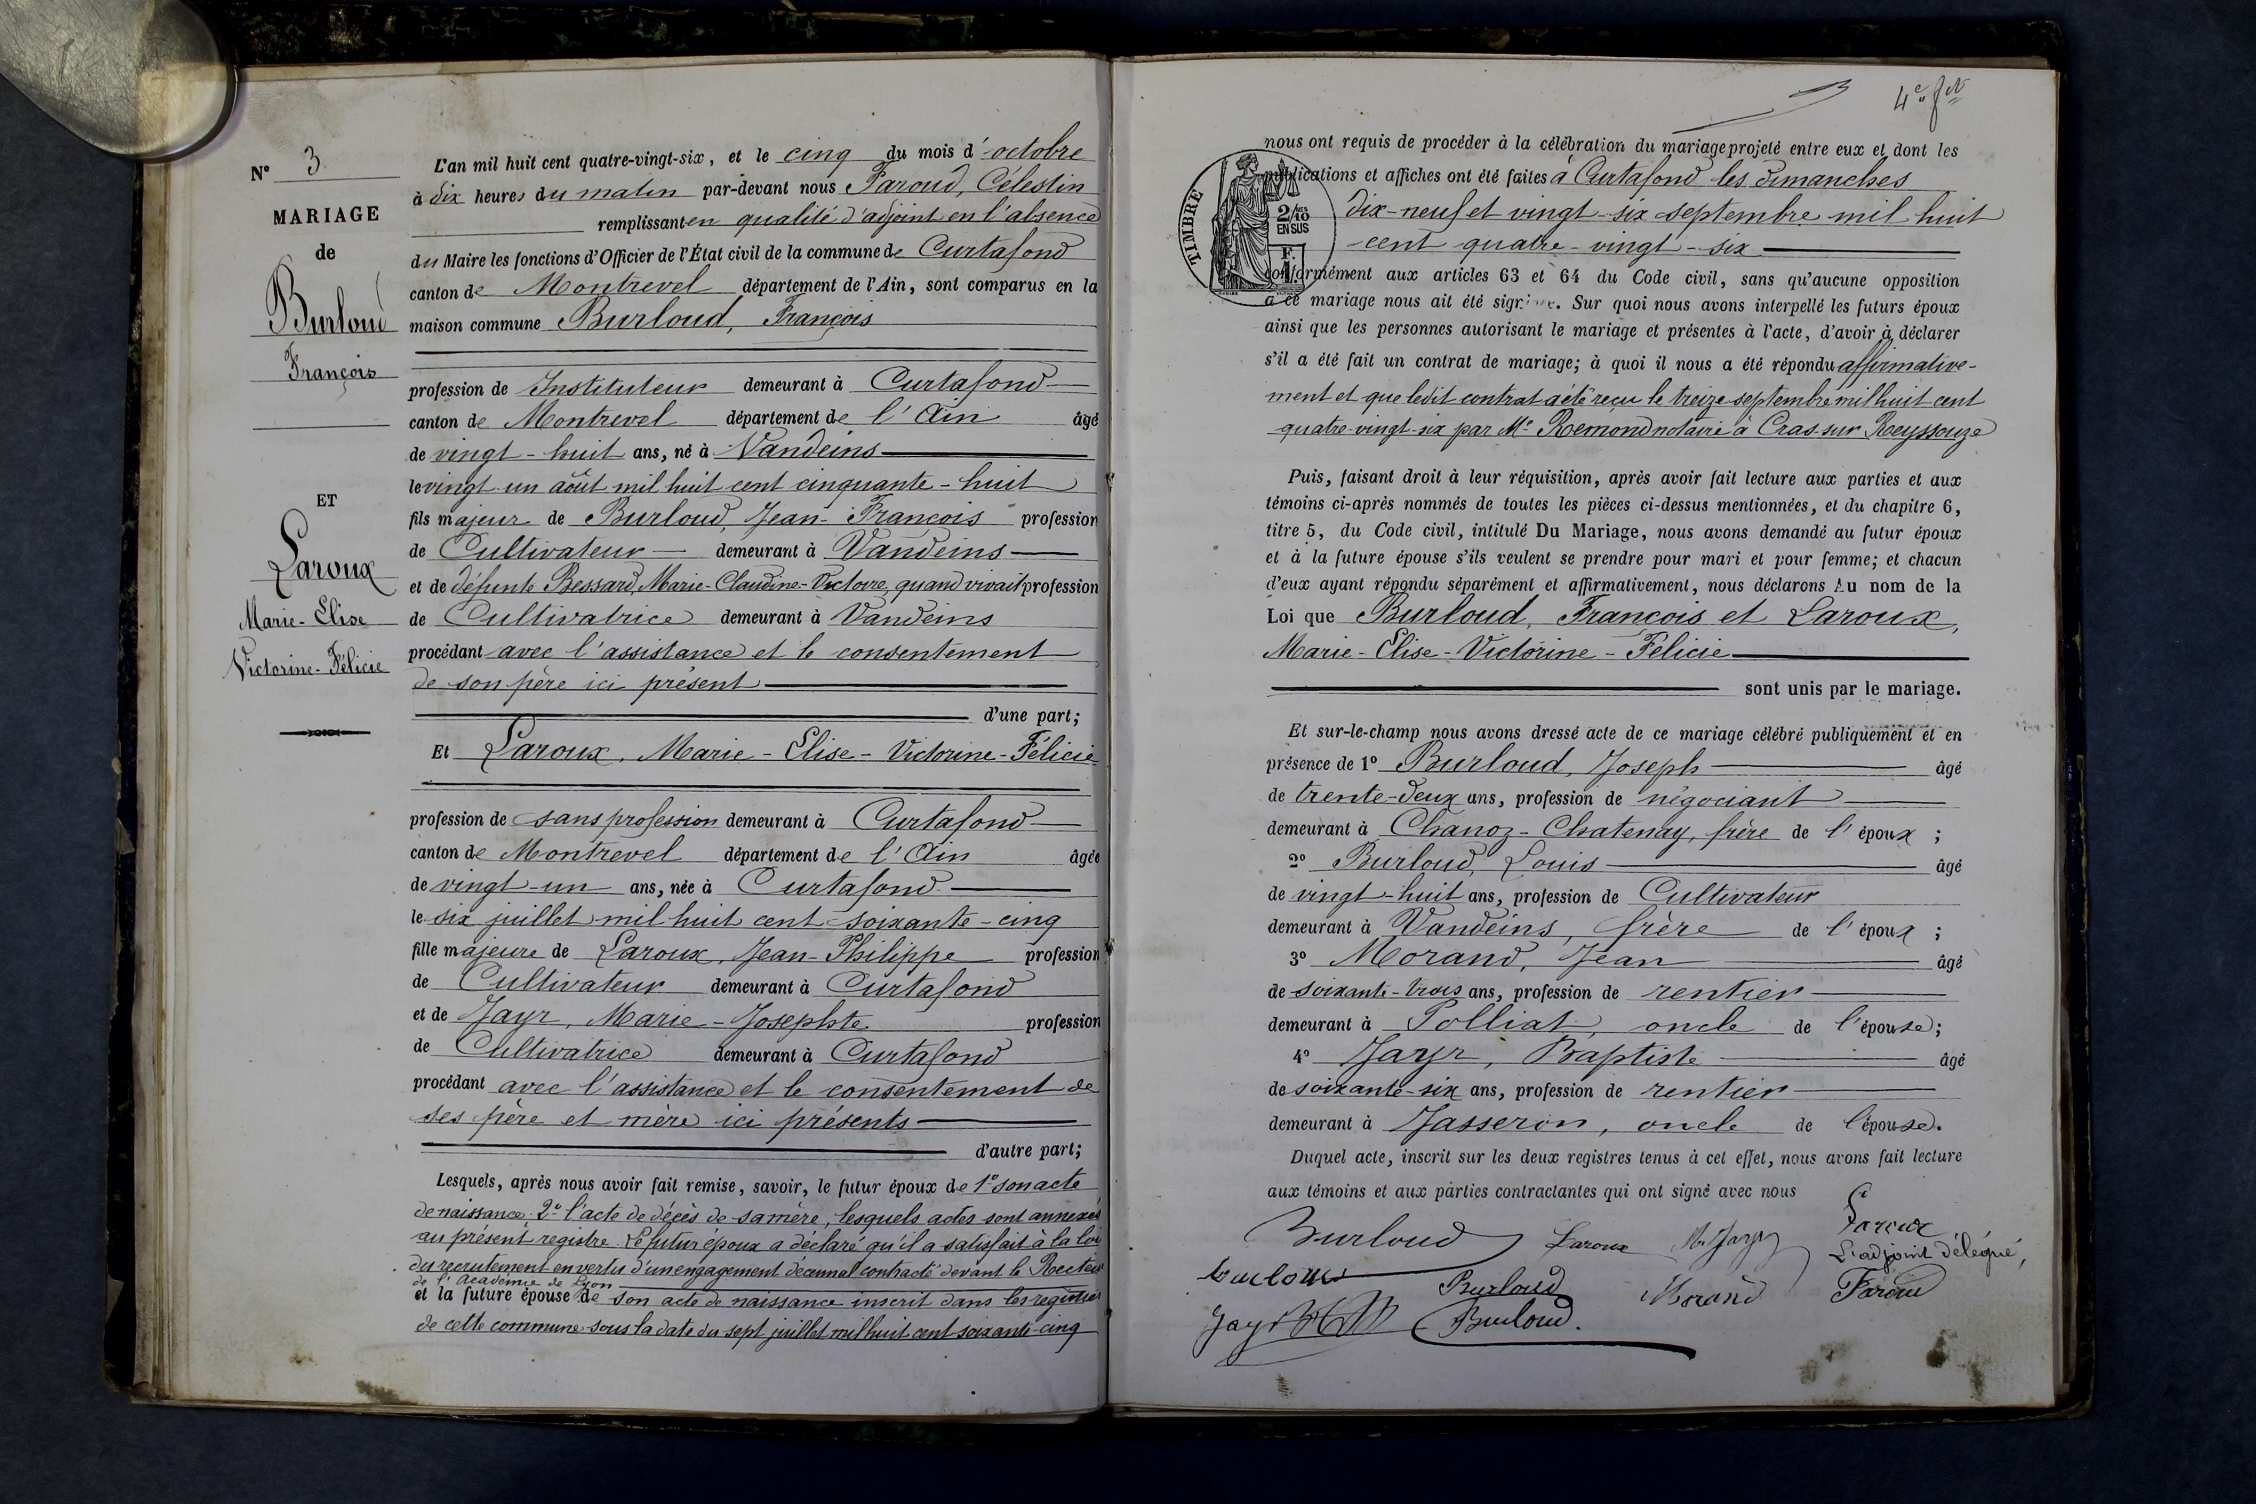 N° 3
MARIAGE
de
Burloud
François
ET
Laroux
Marie-Elise
Victorine-Félicie
L'an mil huit cent quatre-vingt-six, et le cinq du mois d'octobre
à dix heures du matin par-devant nous Faroud, Célestin
remplissant en qualité d'adjoint en l'absence
du Maire les fonctions d'Officier de l'État civil de la commune de Curtafond
canton de Montrevel département de l'Ain, sont comparus en la
maison commune Burloud, François
profession de Instituteur demeurant à Curtafond
canton de Montrevel département de l'Ain âgé
de vingt-huit ans, né à Vandeins
le vingt-un août mil huit cent cinquante-huit
fils majeur de Burloud, Jean-François profession
de Cultivateur demeurant à Vandeins
et de défunte Bessard, Marie-Claudine-Victoire, quand vivait profession
de Cultivatrice demeurant à Vandeins
procédant avec l'assistance et le consentement
de son père ici présent
d'une part;
Et Laroux, Marie-Elise-Victorine-Félicie
profession de sans profession demeurant à Curtafond
canton de Montrevel département de l'Ain âgée
de vingt-un ans, née à Curtafond
le six juillet mil huit cent soixante-cinq
fille majeure de Laroux, Jean-Philippe profession
de Cultivateur demeurant à Curtafond
et de Jayr, Marie-Josephte profession
de Cultivatrice demeurant à Curtafond
procédant avec l'assistance et le consentement de
ses père et mère ici présents
d'autre part;
Lesquels, après nous avoir fait remise, savoir, le futur époux de 1° son acte
de naissance 2° l'acte de décès de sa mère, lesquels actes sont annexés
au présent registre. Le futur époux a déclaré qu'il a satisfait à la loi
du recrutement en vertu d'un engagement décennal contracté devant le Recteur
de l'Académie de Lyon
et la future épouse de son acte de naissance inscrit dans les registres
de cette commune sous la date du sept juillet mil huit cent soixante-cinq
nous ont requis de procéder à la célébration du mariage projeté entre eux et dont les
publications et affiches ont été faites à Curtafond les dimanches
dix-neuf et vingt-six septembre mil huit
cent quatre-vingt-six
TIMBRE
2/10 EN SUS
F. 1.
conformément aux articles 63 et 64 du Code civil, sans qu'aucune opposition
à ce mariage nous ait été signifiée. Sur quoi nous avons interpellé les futurs époux
ainsi que les personnes autorisant le mariage et présentes à l'acte, d'avoir à déclarer
s'il a été fait un contrat de mariage; à quoi il nous a été répondu affirmative-
ment et que ledit contrat a été reçu le treize septembre mil huit cent
quatre-vingt-six par Me Remond notaire à Cras-sur Reyssouze
Puis, faisant droit à leur réquisition, après avoir fait lecture aux parties et aux
témoins ci-après nommés de toutes les pièces ci-dessus mentionnées, et du chapitre 6,
titre 5, du Code civil, intitulé Du Mariage, nous avons demandé au futur époux
et à la future épouse s'ils veulent se prendre pour mari et pour femme; et chacun
d'eux ayant répondu séparément et affirmativement, nous déclarons Au nom de la
Loi que Burloud, François et Laroux,
Marie-Elise-Victorine-Félicie
sont unis par le mariage.
Et sur-le-champ nous avons dressé acte de ce mariage célébré publiquement et en
présence de 1° Burloud, Joseph âgé
de trente-deux ans, profession de négociant
demeurant à Chanoz-Chatenay, frère de l'époux;
2° Burloud, Louis âgé
de vingt-huit ans, profession de Cultivateur
demeurant à Vandeins, frère de l'époux;
3° Morand, Jean âgé
de soixante-trois ans, profession de rentier
demeurant à Polliat, oncle de l'épouse;
4° Jayr, Baptiste âgé
de soixante-six ans, profession de rentier
demeurant à Jasseron, oncle de l'épouse.
Duquel acte, inscrit sur les deux registres tenus à cet effet, nous avons fait lecture
aux témoins et aux parties contractantes qui ont signé avec nous
Burloud Laroux M. Jayr
L'adjoint délégué,
Burloud Morand Faroud
Jayr Burloud.